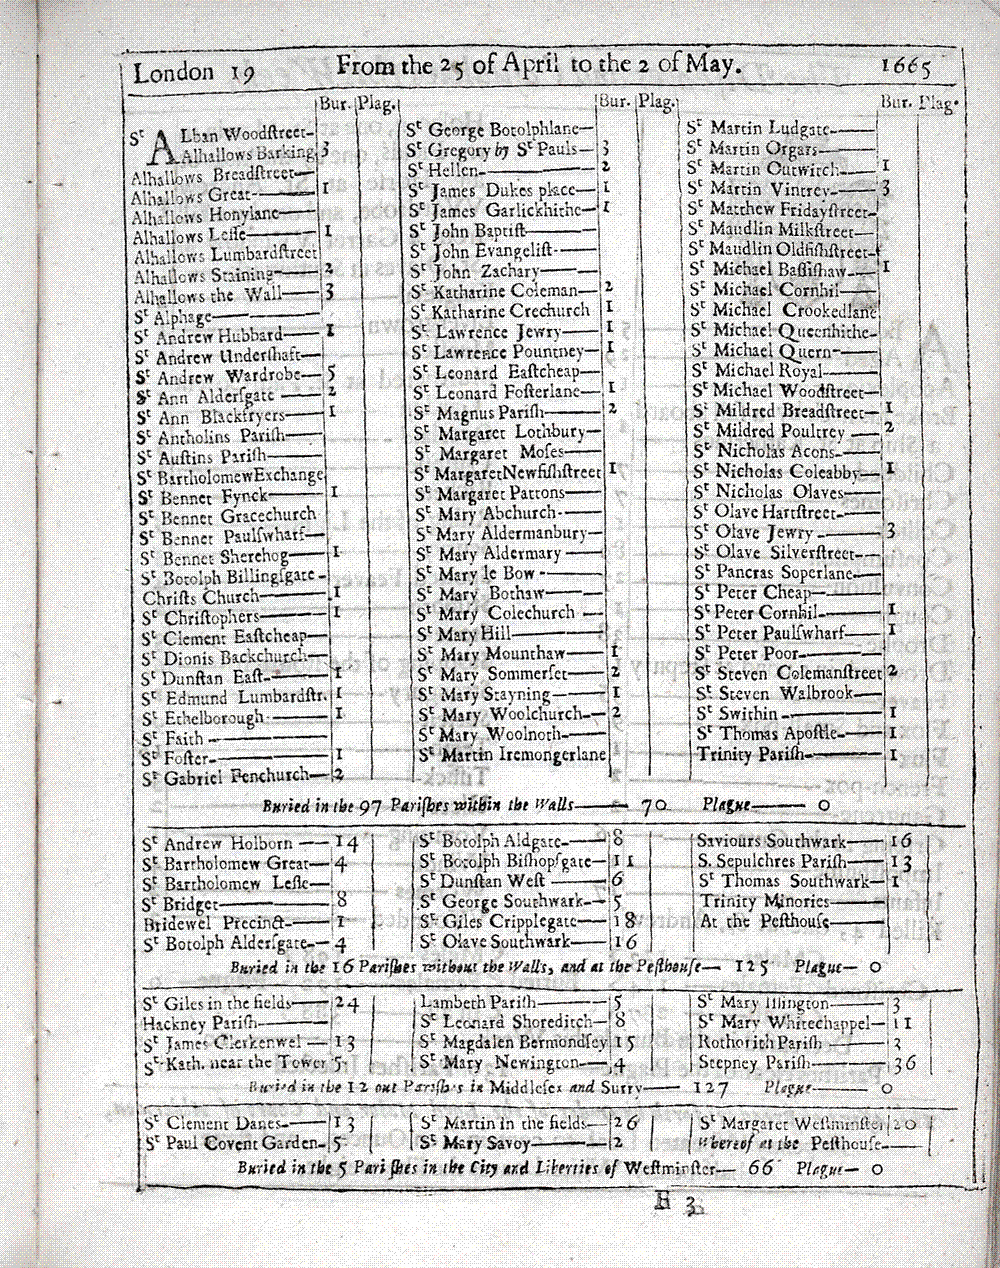 London 19 From the 25 of April to the 2 of May. 1665
Bur. Plag.
St ALban Woodſtreet—
Alhallows Barking 3
Alhallows Breadſtreet—
Alhallows Great— 1
Alhallows Honylane—
Alhallows Leſſe— 1
Alhallows Lumbardſtreet
Alhallows Staining— 2
Alhallows the Wall— 3
St Alphage—
St Andrew Hubbard— 1
St Andrew Underſhaft—
St Andrew Wardrobe— 5
St Ann Alderſgate— 2
St Ann Blackfryers— 1
St Antholins Pariſh—
St Auſtins Pariſh—
St Bartholomew Exchange
St Bennet Fynck— 1
St Bennet Gracechurch
St Bennet Paulſwharf—
St Bennet Sherehog— 1
St Botolph Billingſgate-
Chriſts Church— 1
St Chriſtophers— 1
St Clement Eaſtcheap—
St Dionis Backchurch—
St Dunſtan Eaſt— 1
St Edmund Lumbardſtr. 1
St Ethelborough— 1
St Faith—
St Foſter— 1
St Gabriel Fenchurch— 2
Bur. Plag.
St George Botolphlane—
St Gregory by St Pauls— 3
St Hellen— 2
St James Dukes place— 1
St James Garlickhithe— 1
St John Baptiſt—
St John Evangeliſt—
St John Zachary—
St Katharine Coleman— 2
St Katharine Crechurch 1
St Lawrence Jewry— 1
St Lawrence Pountney— 1
St Leonard Eaſtcheap—
St Leonard Foſterlane— 1
St Magnus Pariſh— 2
St Margaret Lothbury—
St Margaret Moſes—
St Margaret Newfiſhſtreet 1
St Margaret Pattons—
St Mary Abchurch—
St Mary Aldermanbury—
St Mary Aldermary—
St Mary le Bow—
St Mary Bothaw—
St Mary Colechurch—
St Mary Hill—
St Mary Mounthaw— 1
St Mary Sommerſet— 2
St Mary Stayning— 1
St Mary Woolchurch— 2
St Mary Woolnoth—
St Martin Iremongerlane 1
Bur. Plag.
St Martin Ludgate—
St Martin Orgars—
St Martin Outwitch— 1
St Martin Vintrey— 3
St Matthew Fridayſtreet—
St Maudlin Milkſtreet—
St Maudlin Oldfiſhſtreet
St Michael Baſſiſhaw— 1
St Michael Cornhil—
St Michael Crookedlane
St Michael Queenhithe—
St Michael Quern—
St Michael Royal—
St Michael Woodſtreet—
St Mildred Breadſtreet— 1
St Mildred Poultrey— 2
St Nicholas Acons—
St Nicholas Coleabby— 1
St Nicholas Olaves—
St Olave Hartſtreet—
St Olave Jewry— 3
St Olave Silverſtreet—
St Pancras Soperlane—
St Peter Cheap—
St Peter Cornhil— 1
St Peter Paulſwharf— 1
St Peter Poor—
St Steven Colemanſtreet 2
St Steven Walbrook—
St Swithin— 1
St Thomas Apoſtle— 1
Trinity Pariſh— 1
Buried in the 97 Pariſhes within the Walls— 70 Plague— 0
St Andrew Holborn— 14
St Bartholomew Great— 4
St Bartholomew Leſſe—
St Bridget— 8
Bridewel Precinct— 1
St Botolph Alderſgate— 4
St Botolph Aldgate— 8
St Botolph Biſhopſgate— 11
St Dunſtan Weſt— 6
St George Southwark— 5
St Giles Cripplegate— 18
St Olave Southwark— 16
Saviours Southwark— 16
S. Sepulchres Pariſh— 13
St Thomas Southwark— 1
Trinity Minories—
At the Peſthouſe—
Buried in the 16 Pariſhes without the Walls, and at the Peſthouſe— 125 Plague— 0
St Giles in the fields— 24
Hackney Pariſh—
St James Clerkenwel— 13
St Kath. near the Tower 5
Lambeth Pariſh— 5
St Leonard Shoreditch— 8
St Magdalen Bermondſey 15
St Mary Newington— 4
St Mary Iſlington— 3
St Mary Whitechappel— 11
Rothorith Pariſh— 3
Stepney Pariſh— 36
Buried in the 12 out Pariſhes in Middleſex and Surry— 127 Plague— 0
St Clement Danes— 13
St Paul Covent Garden— 5
St Martin in the fields— 26
St Mary Savoy— 2
St Margaret Weſtminſter 20
Whereof at the Peſthouſe—
Buried in the 5 Pariſhes in the City and Liberties of Weſtminſter— 66 Plague— 0
3